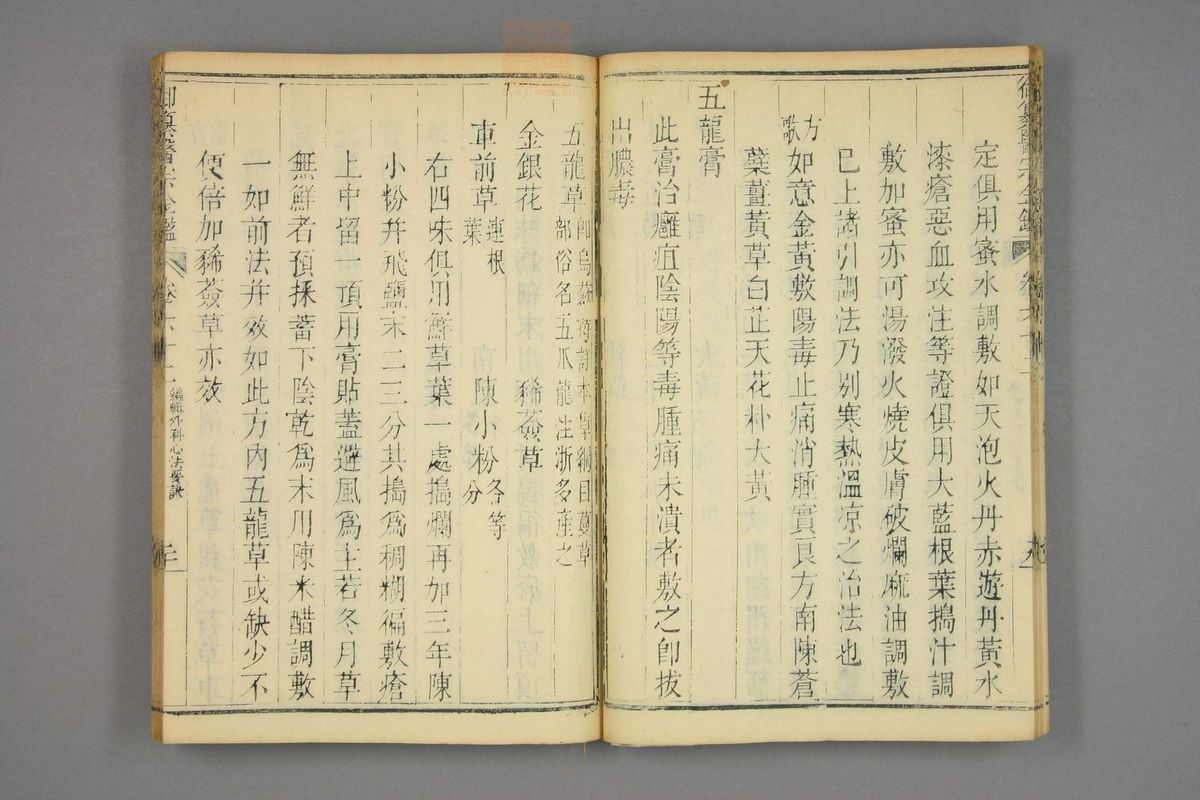 定俱用蜜水調敷如天泡火丹赤遊丹黃水
漆瘡惡血攻注等證俱用大藍根葉搗汁調
敷加蜜亦可湯潑火燒皮膚破爛麻油調敷
已上諸引調法乃別寒熱溫凉之治法也
方歌
如意金黃敷陽毒止痛消腫實良方南陳蒼
蘗薑黃草白芷天花朴大黃
五龍膏
此膏治癰疽陰陽等毒腫痛未潰者敷之即拔
出膿毒
五龍草
即烏蘝苺詳本草綱目蔓草
部俗名五爪龍江浙多產之
金銀花 豨薟草
車前草
連根
葉
陳小粉
各等
分
右四味俱用鮮草葉一處搗爛再加三年陳
小粉并飛鹽末二三分共搗為稠糊徧敷瘡
上中留一頂用膏貼蓋避風為主若冬月草
無鮮者預採蓄下陰乾為末用陳米醋調敷
一如前法并效如此方內五龍草或缺少不
便倍加豨薟草亦效
御纂醫宗金鑑
卷六十二
編輯外科心法要訣